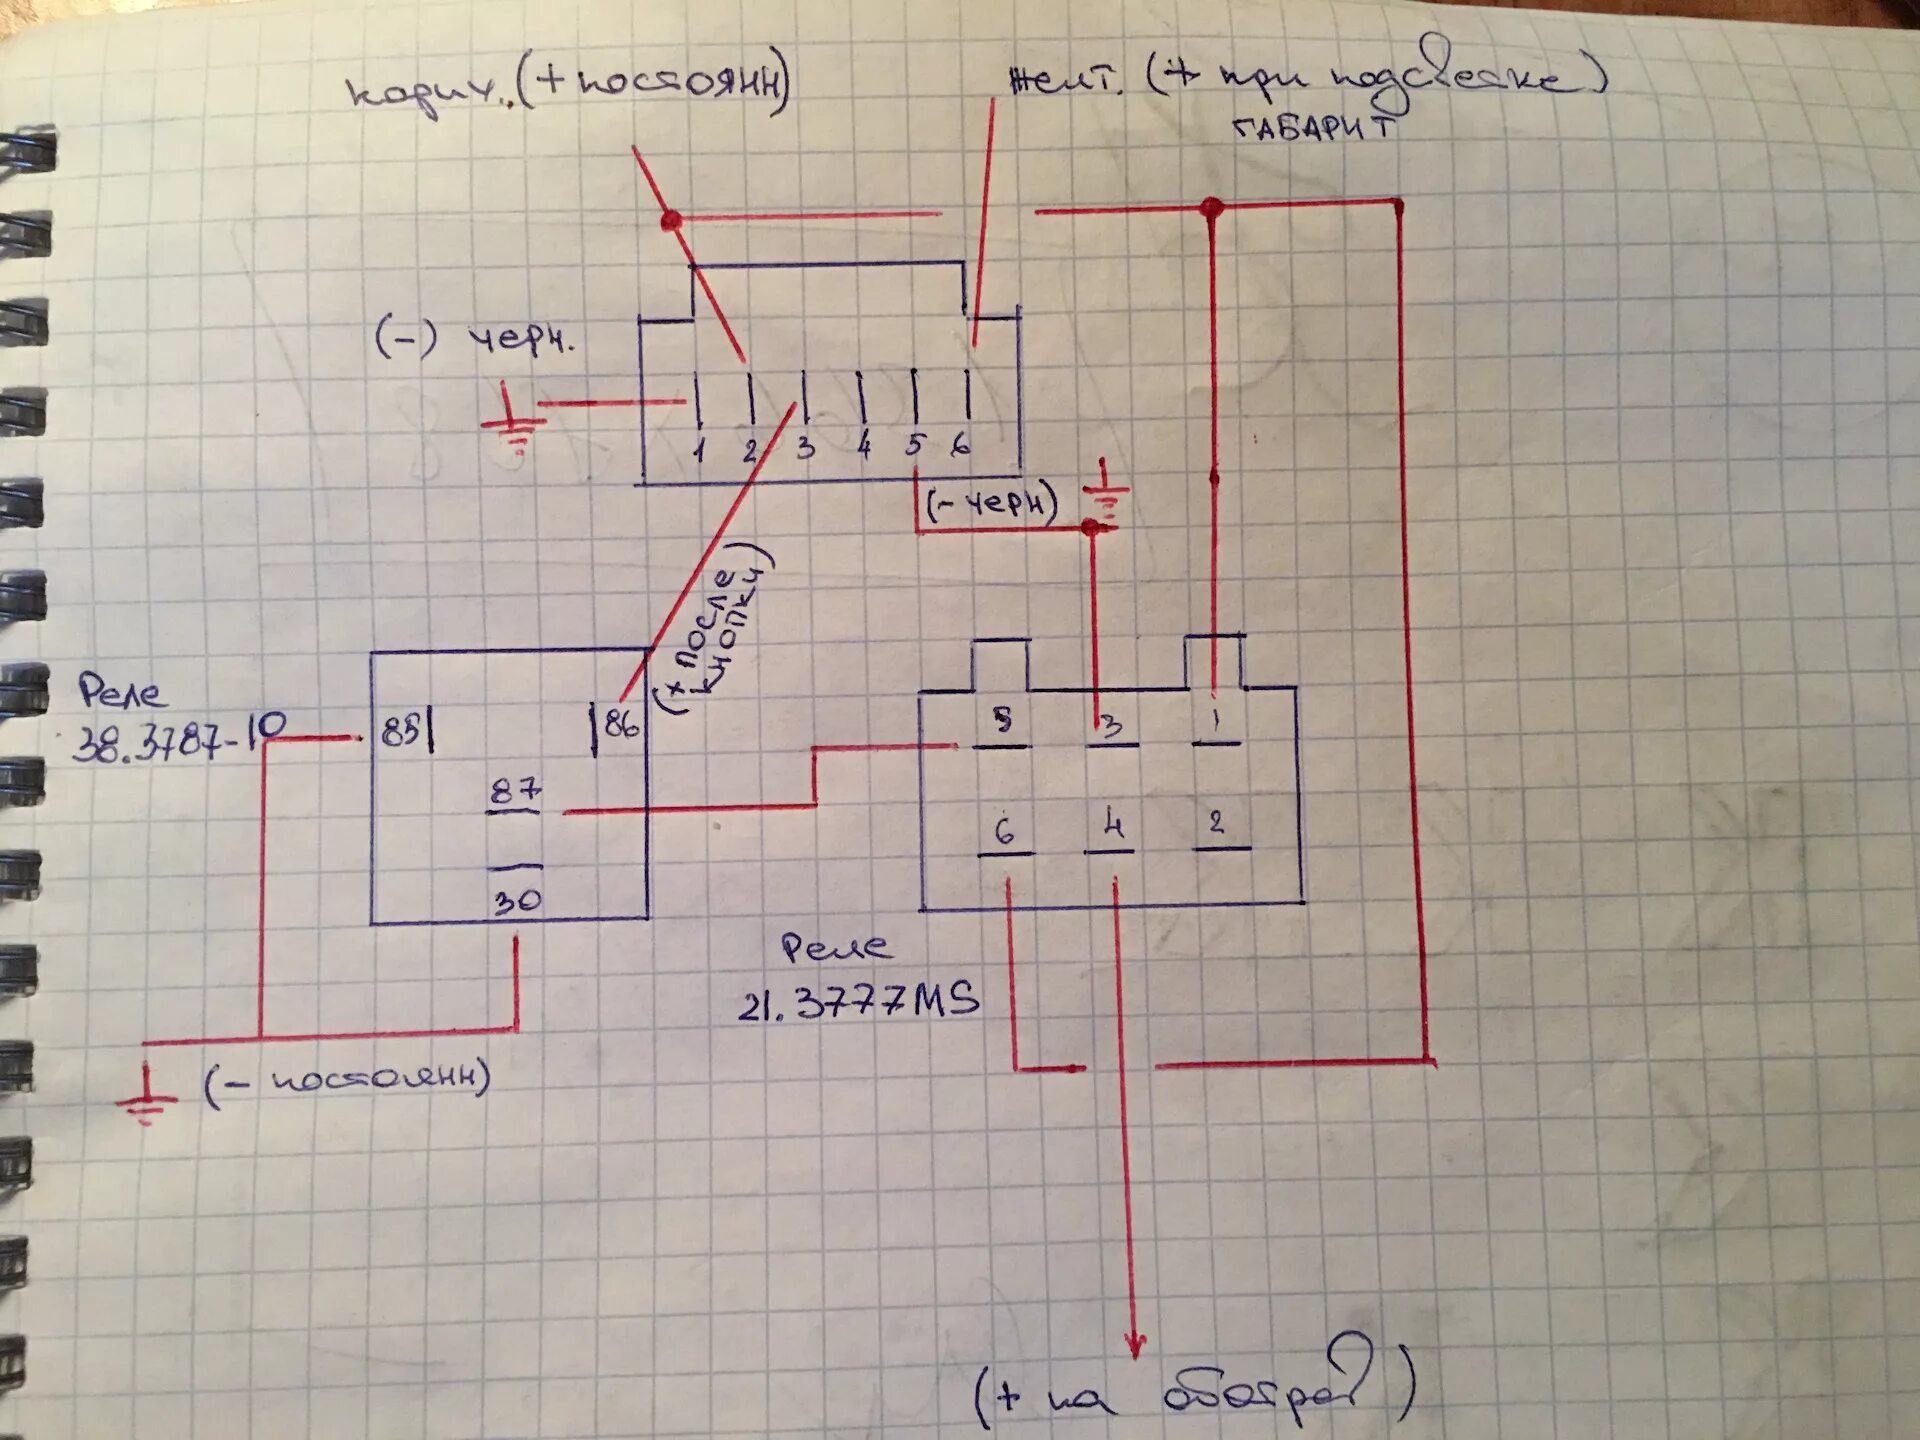 корич. (+ постоянн)
желт. (+ при подсветке)
ГАБАРИТ
(-) черн.
1 2 3 4 5 6
(- черн)
(+ после кнопки)
Реле
38.3787-10
85 86
87
30
5 3 1
6 4 2
Реле
21.3777MS
(- постоянн)
(+ на обогрев)